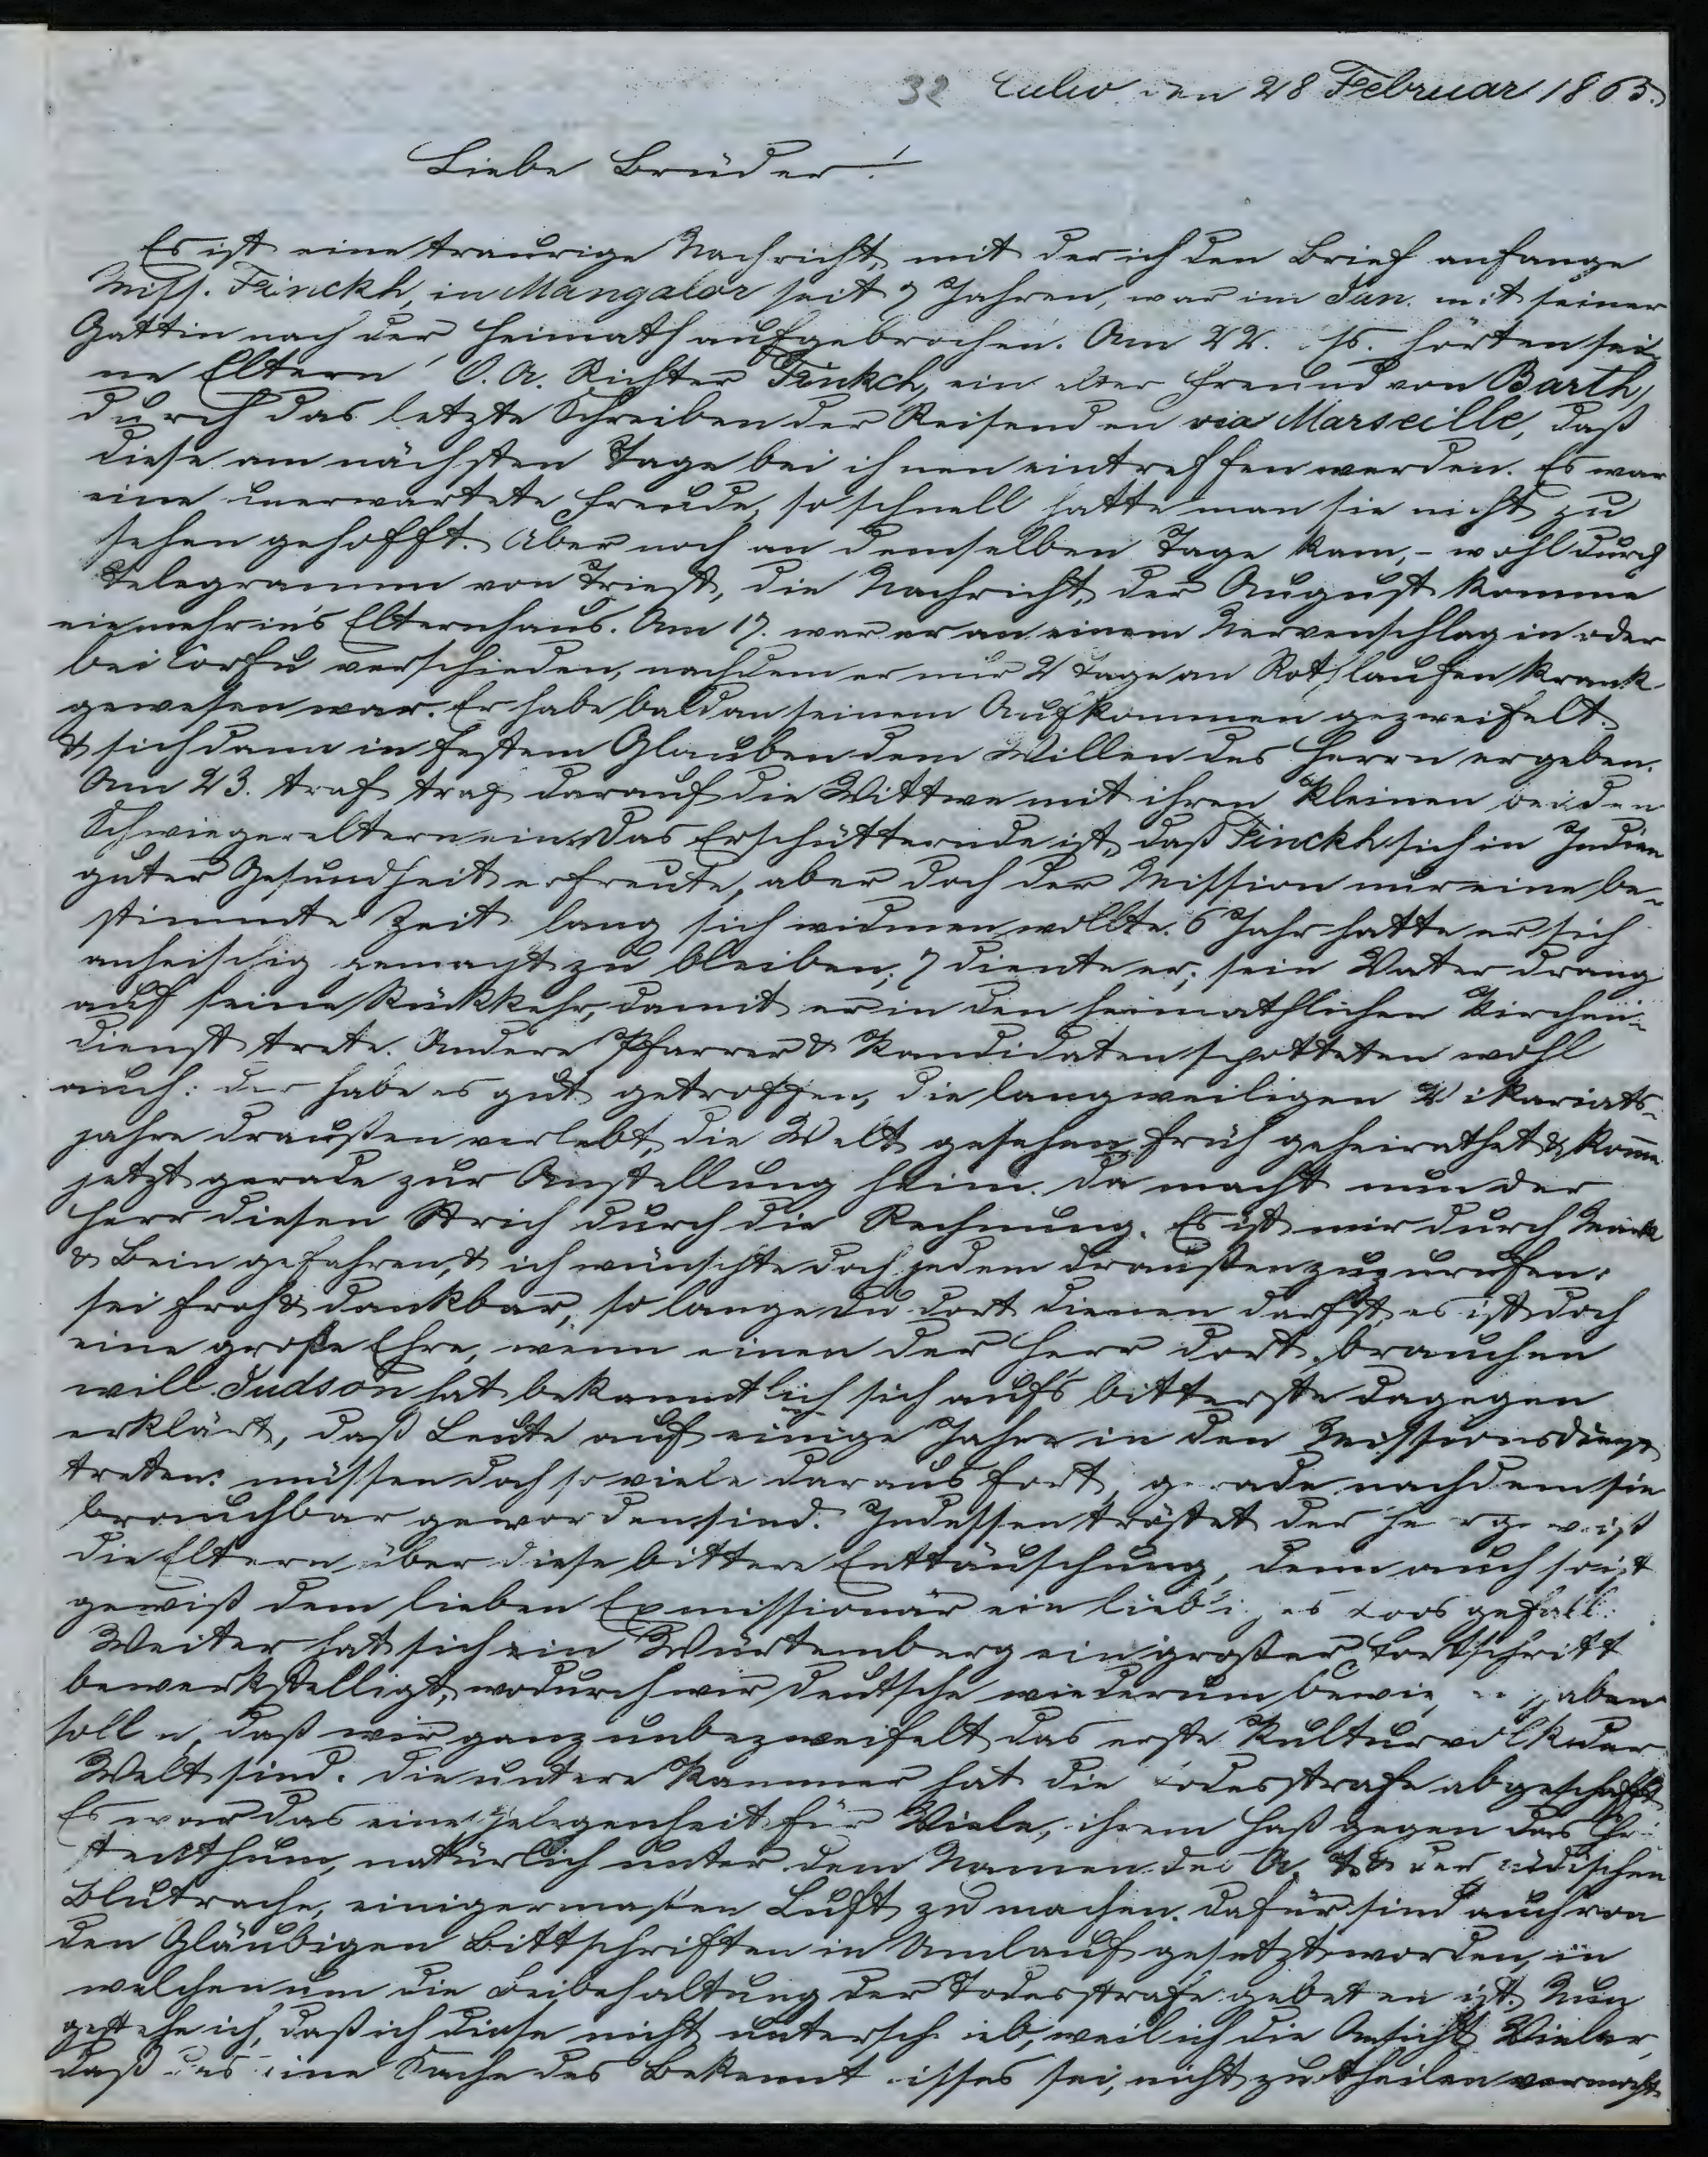 32 Calw. den 28 Februar 1865.
Liebe Brüder!
Es ist eine traurige Nachricht, mit der ich den Brief anfange
Miss. Finckh, in Mangalor seit 7 Jahren, war im Jan. mit seiner
Gattin nach der Heimath aufgebrochen. Am 22. ds. hörten sei-
ne Eltern O. A. Richter Finkch, ein alter Freund von Barth,
durch das letzte Schreiben der Reisenden via Marseille, daß
diese am nächsten Tage bei ihnen eintreffen werden. Es war
eine unerwartete Freude, so schnell hatte man sie nicht zu
sehen gehofft. Aber noch an demselben Tage kam, - wohl durch
Telegramm von Triest, die Nachricht, der August komme
nie mehr in's Elternhaus. Am 17. war er an einem Nervenschlag in oder
bei Corfu verschieden, nachdem er nur 2 Tage an Rothlaufen krank
gewesen war. Er habe bald an seinem Aufkommen gezweifelt.
& sich dann in festem Glauben dem Willen des Herrn ergeben.
Am 23. traf traf darauf die Wittwe mit ihren Kleinen bei den
Schwiegereltern ein. Das Erschütternde ist, daß Finckh sich in Indien
guter Gesundheit erfreute, aber doch der Mission nur eine be-
stimmte Zeit lang sich widmen wollte. 6 Jahr hatte er sich
anheischig gemacht zu bleiben; 7 diente er; sein Vater drang
auf seine Rückkehr, damit er in den heimathlichen Kirchen-
dienst trete. Andere Pfarrer & Kandidaten spotteten wohl
auch: der habe es gut getroffen, die langweiligen Vikariats-
jahre draußen verlebt, die Welt gesehen, früh geheirathet & kom̅e
jetzt gerade zur Anstellung heim. Da macht nun der
Herr diesen Strich durch die Rechnung. Es ist mir durch Mark
& Bein gefahren, & ich wünschte doch jedem draußen zuzurufen:
sei froh & dankbar, so lange du dort dienen darfst, es ist doch
eine große Ehre, wenn einen der Herr dort brauchen
will. Judson hat bekanntlich sich aufs bitterste dagegen
erklärt, daß Leute auf einige Jahre in den Missionsdienst
treten: müssen doch so viele daraus fort, gerade nachdem sie
brauchbar geworden sind. Indessen tröstet der Herr gewiß
die Eltern über diese bittere Enttäuschung, denn auch so ist
gewiß dem lieben Exmissionär ein liebliches Loos gefall.
Weiter hat sich in Würtemberg ein großer Fortschritt
bewerkstelligt, wodurch wir Deutsche wiederum bewiesen haben
sollen, daß wir ganz unbezweifelt das erste Kulturvolk der
Welt sind. Die untere Kammer hat die Todesstrafe abgeschafft
Es war das eine Gelegenheit für Viele, ihrem Haß gegen das Chri-
stenthum, natürlich unter dem Namen des A. T. & der jüdischen
Blutrache, einigermaßen Luft zu machen. Dafür sind auch von
den Gläubigen Bittschriften in Umlauf gesetzt worden, in
welchen um die Beibehaltung der Todesstrafe gebeten ist. Nun
gestehe ich, daß ich diese nicht unterschrieb, weil ich die Ansicht Vieler,
daß das eine Sache des Bekenntnisses sei, nicht zu theilen vermocht